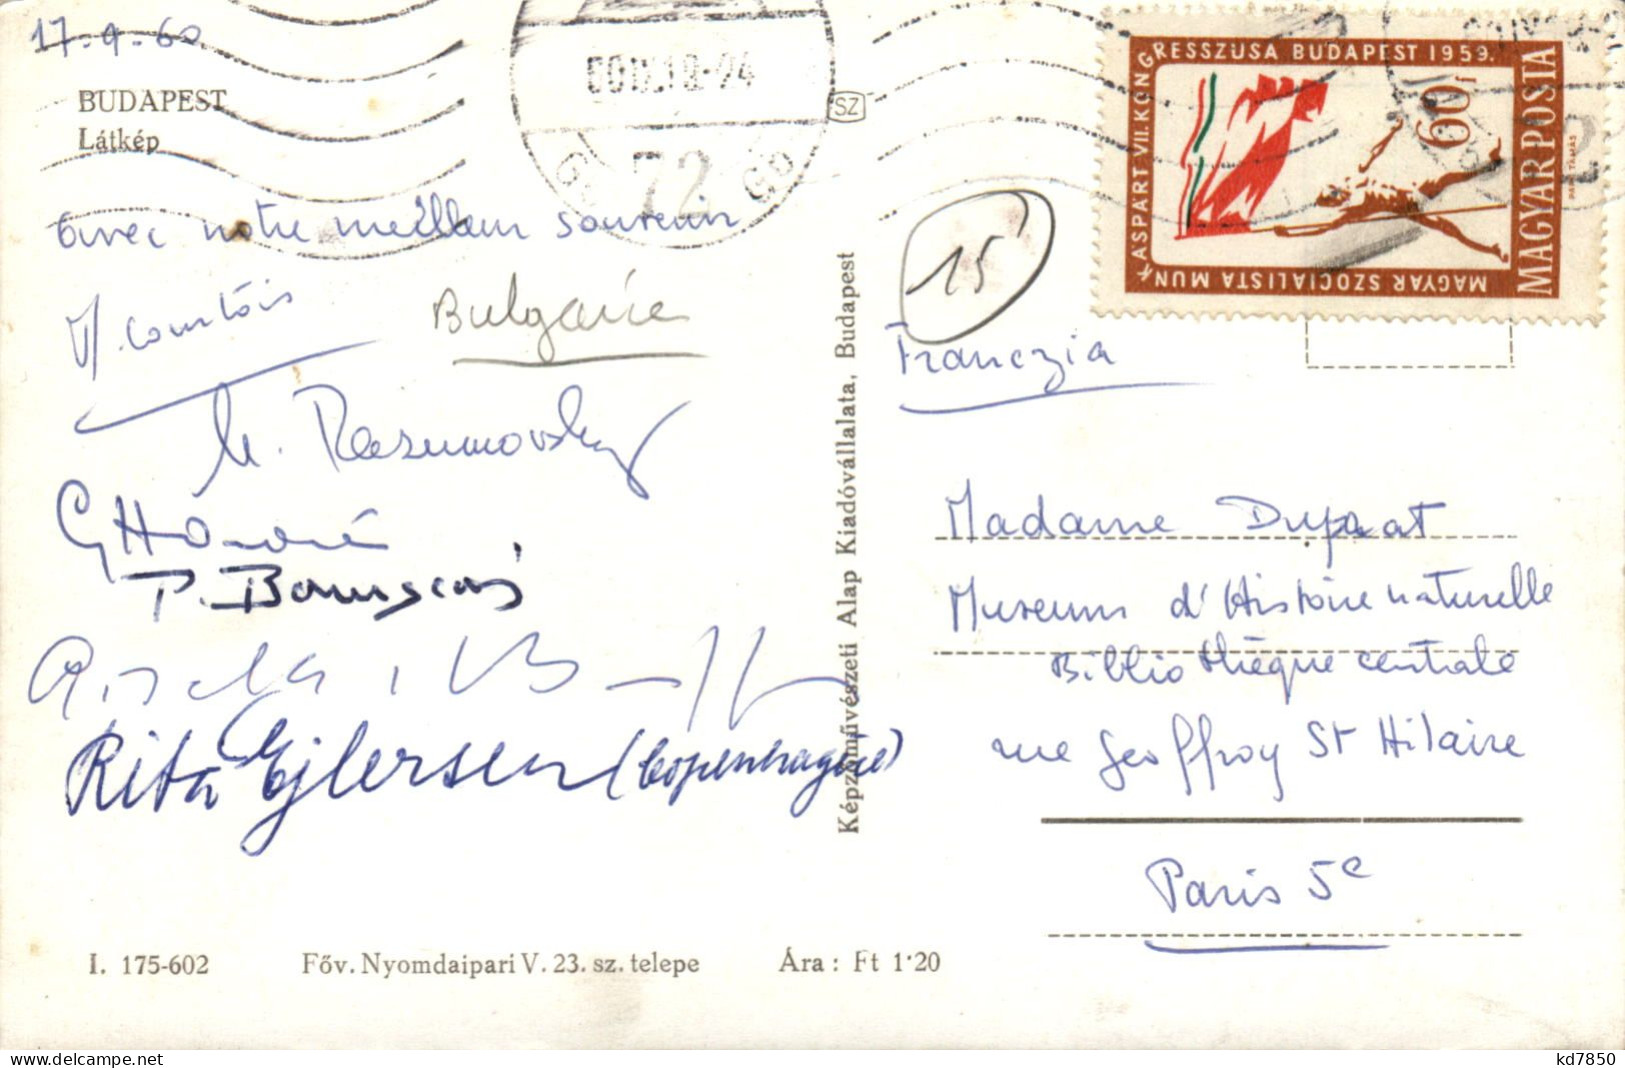 17-9-60
BUDAPEST
Látkép
SZ
72
avec notre meilleur souvenir
Bulgarie
Y. Comtois
M. Rasumovsky
Rita Ejlersen (Copenhague)
I. 175-602
Főv. Nyomdaipari V. 23. sz. telepe
Ára: Ft 1·20
Képzőművészeti Alap Kiadóvállalata, Budapest
MAGYAR SZOCIALISTA MUNKÁSPÁRT VII. KONGRESSZUSA BUDAPEST 1959.
60f
MAGYAR POSTA
15
Franczia
Madame Duprat
Museum d'Histoire naturelle
Bibliothèque centrale
rue Geoffroy St Hilaire
Paris 5e
kd7850